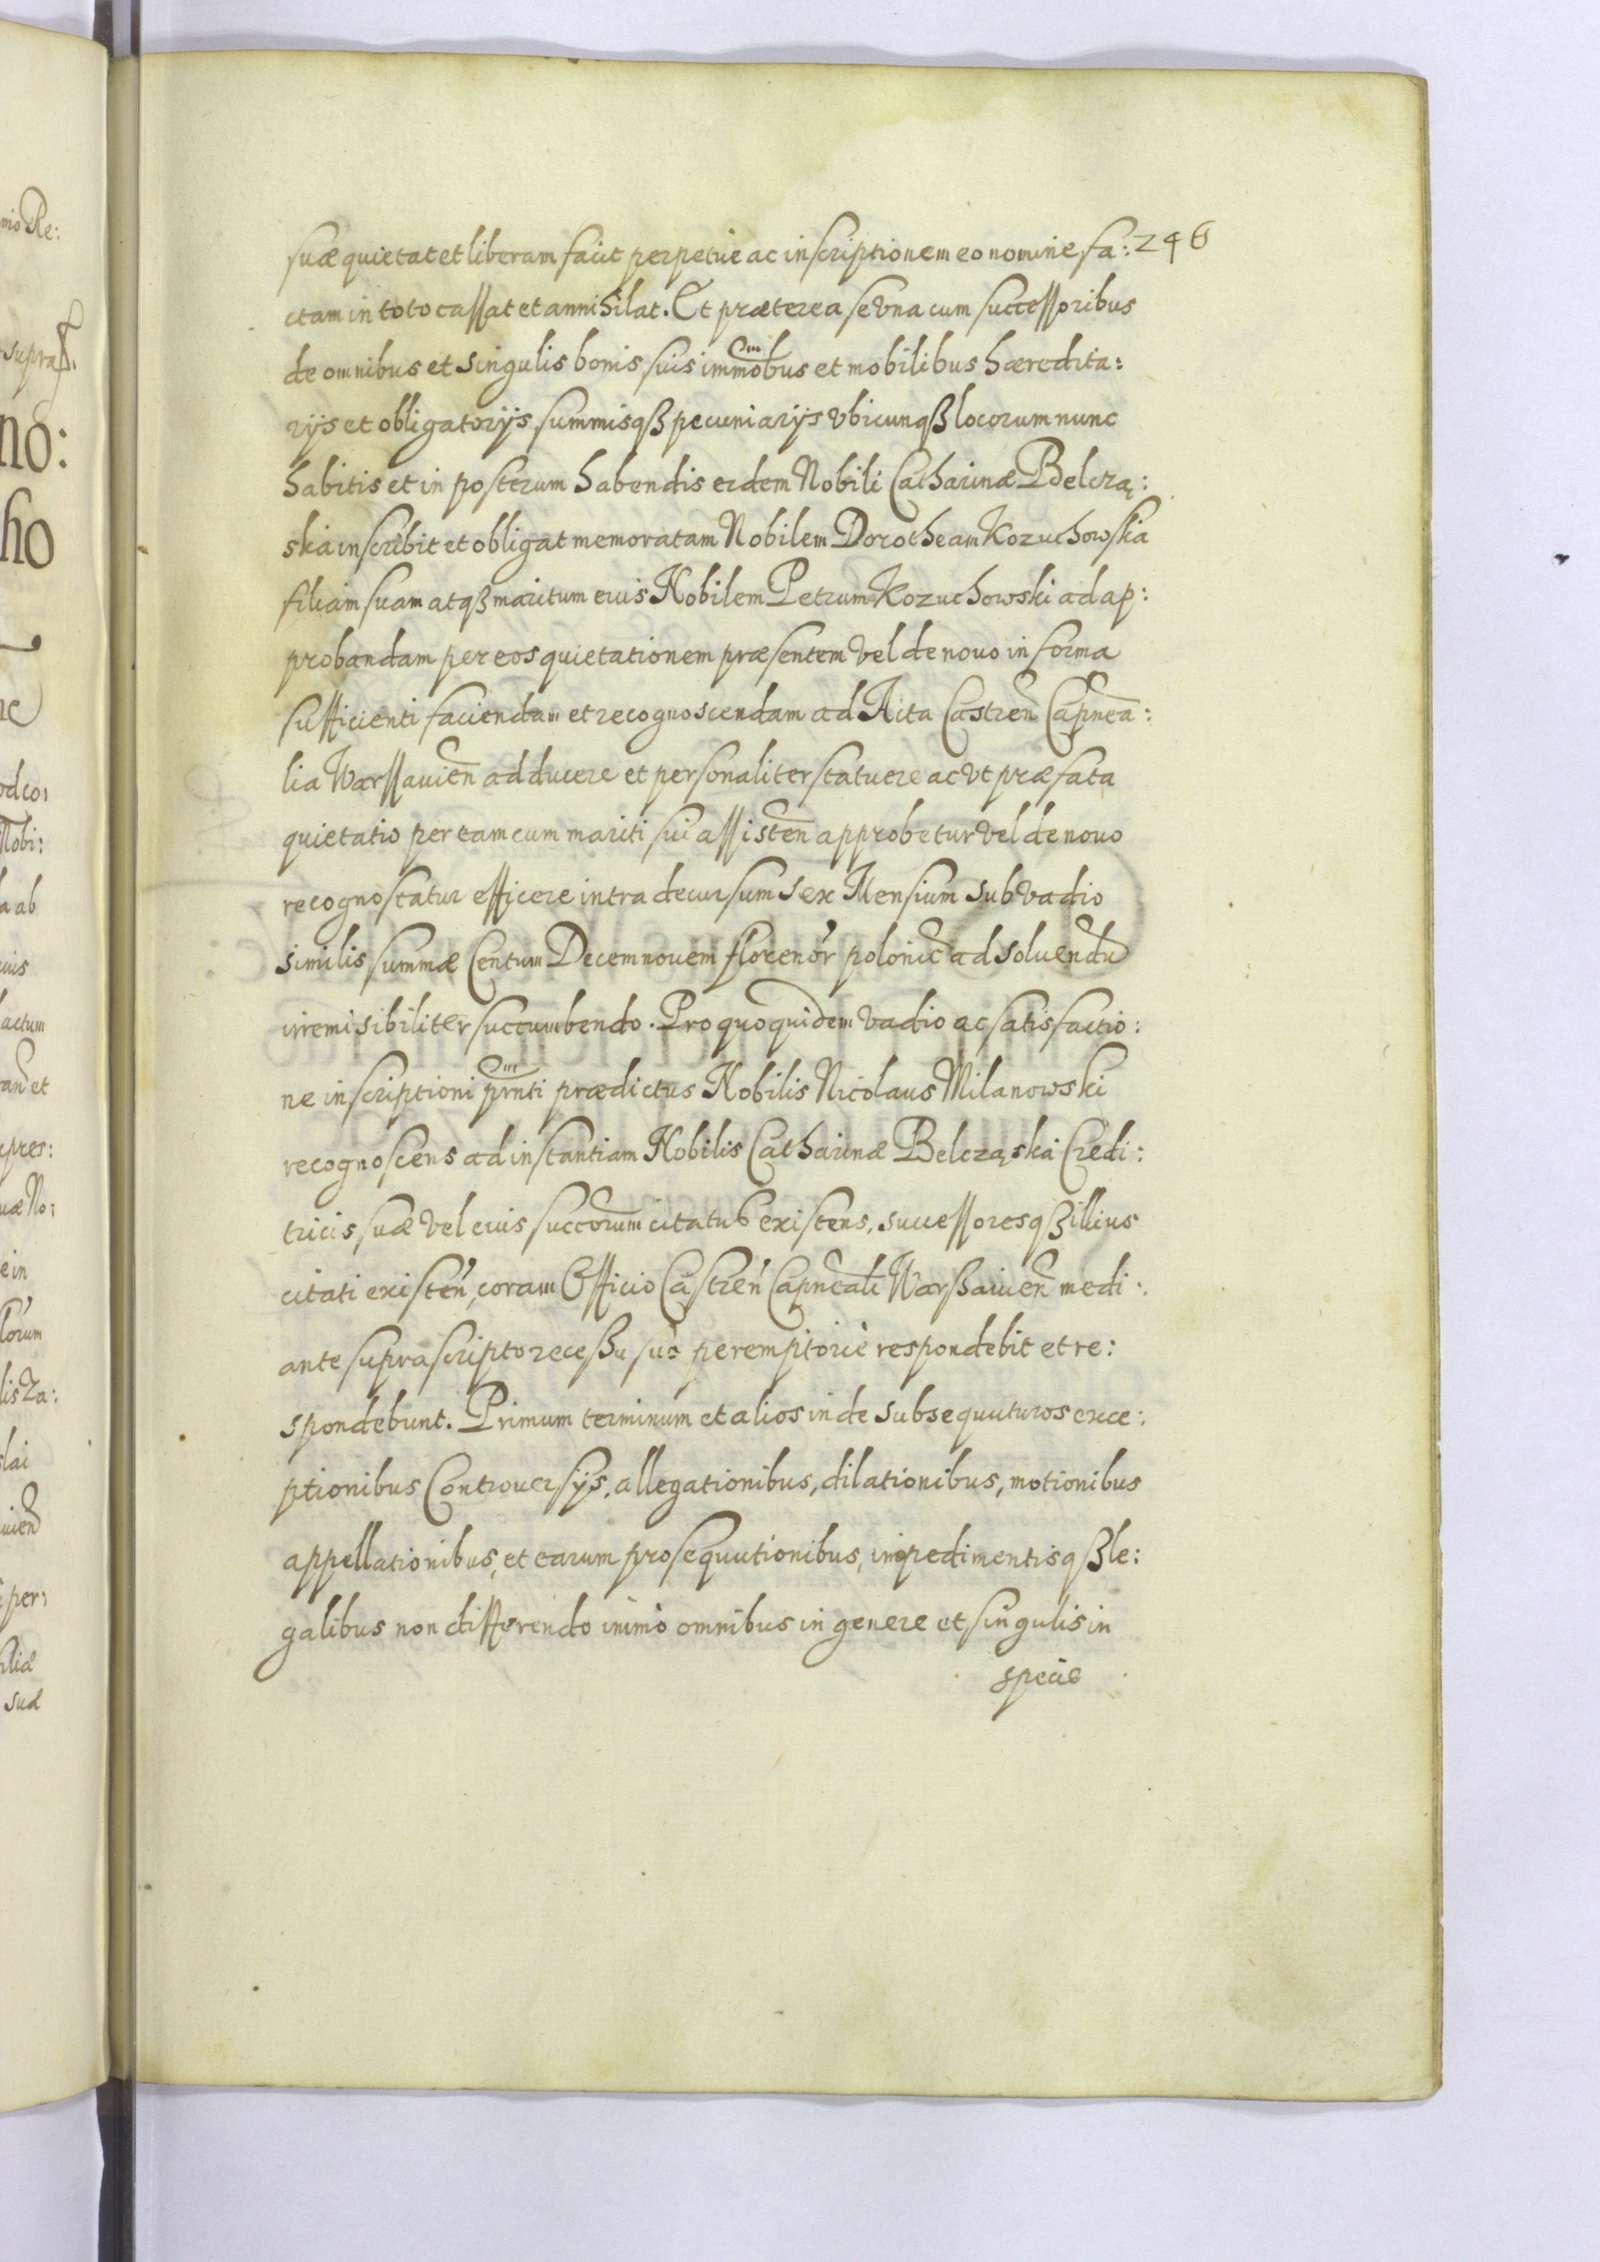 suæ quietat et liberam facit perpetue ac inscriptionem eo nomine fa: 246
ctam in toto cassat et annihilat. Et præterea se vna cum successoribus
de omnibus et singulis bonis suis immobus et mobilibus hæredita:
rijs et obligatorijs, summisqß pecuniarijs vbicunqß locorum nunc
habitis et in posterum habendis eidem Nobili Catharinæ Belczą:
ska inscribit et obligat memoratam Nobilem Dorotheam Kozuchowska
filiam suam atqß maritum eius Nobilem Petrum Kozuchowski ad ap:
probandam per eos quietationem præsentem vel de nouo in forma
sufficienti faciendam et recognoscendam ad Acta Castren̄ Capnea:
lia Warssauien̄ adducere et personaliter statuere ac vt præfata
quietatio per eam cum mariti sui assisten̄ approbetur vel de nouo
recognoscatur efficere intra decursum sex Mensium sub vadio
similis summæ Centum Decem nouem florenor̄ polonic̄ ad soluendū
irremisibiliter succumbendo. Pro quo quidem vadio ac satisfactio:
ne inscriptioni prnti prædictus Nobilis Nicolaus Milanowski
recognoscens ad instantiam Nobilis Catharinæ Belcząska Credi:
tricis suæ vel eius succorum citatus existens, successoresqß illius
citati existen̄, coram Officio Castren̄ Capneali Warßauien̄ medi:
ante suprascripto receßu suo peremptorie respondebit et re:
spondebunt. Primum terminum et alios inde subsequuturos exce:
ptionibus Controuersijs, allegationibus, dilationibus, motionibus
appellationibus, et earum prosequutionibus, impedimentisqß le:
galibus non differendo inimo omnibus in genere et singulis in
specie